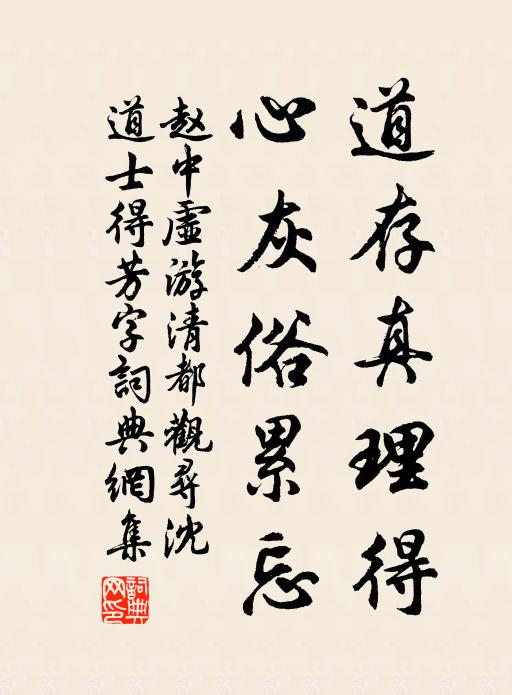 道存真理得
心灰俗累忘
赵中虛游清都觀尋沈
道士得芳字詞典網集
詞典网印